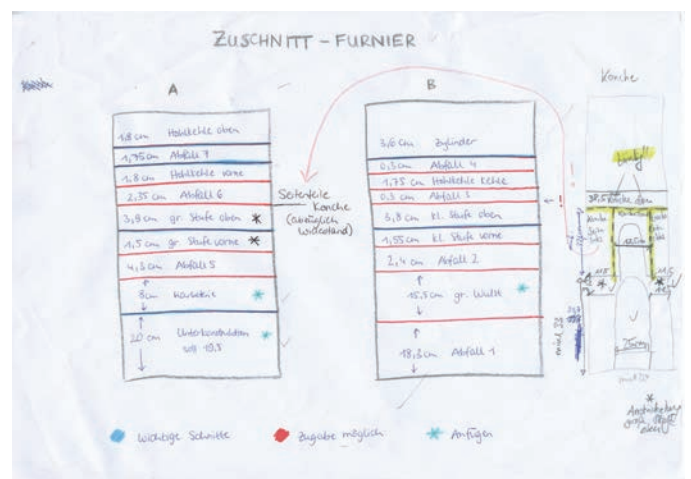 ZUSCHNITT - FURNIER
A
1,8 cm Hohlkehle oben
1,75 cm Abfall 7
1,8 cm Hohlkehle vorne
2,35 cm Abfall 6
3,8 cm gr. Stufe oben *
1,5 cm gr. Stufe vorne *
4,5 cm Abfall 5
8cm *
20 cm Unterkonstruktion *
soll 19,5
Seitenteile
Konche
(abzüglich
Widerstand)
B
3,6 cm Zylinder
0,5 cm Abfall 4
1,75 cm Hohlkehle Kehle
0,3 cm Abfall 3
3,8 cm kl. Stufe oben
1,55 cm kl. Stufe vorne
2,4 cm Abfall 2
15,5 cm gr. Wulst *
18,3 cm Abfall 1
!
Konche
Konche oben
25cm
*
wichtige Schnitte
Zugabe möglich
* Anfügen